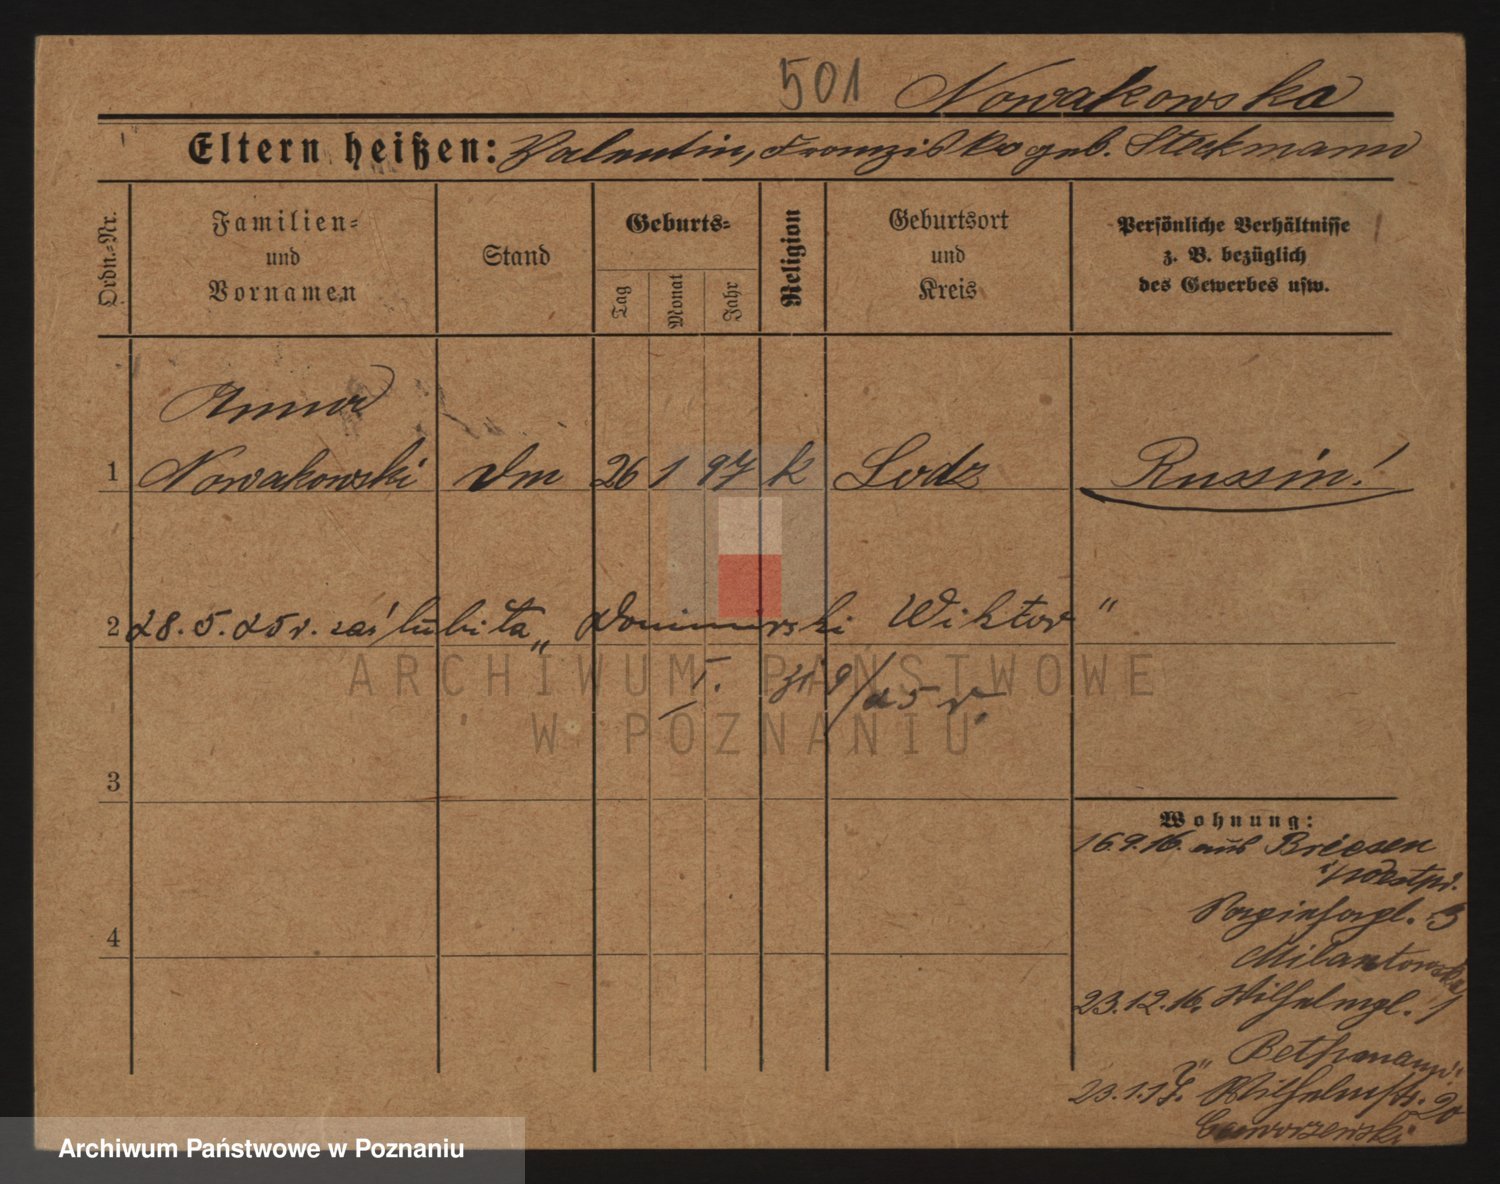 501 Nowakowska
Eltern heißen: Valentin, Franziska geb. Stekmann
Ordn.-Nr.
Familien-
und
Vornamen
Stand
Geburts-
Tag
Monat
Jahr
Religion
Geburtsort
und
Kreis
Persönliche Verhältnisse
z. B. bezüglich
des Gewerbes usw.
Anna
1 Nowakowski 26 1 97 k Lodz Russin!
2 28.5.25 r. zaślubiła „Donimirski Wiktor"
I. 319/25 r.
3
Wohnung:
16.9.16. aus Briesen
i/Westpr.
4
3
Milantowska
23.12.16. Wilhelmpl. 1
Bethmann
23.1.17. Wilhelmstr. 20
Coworzewski
ARCHIWUM PAŃSTWOWE
W POZNANIU
Archiwum Państwowe w Poznaniu